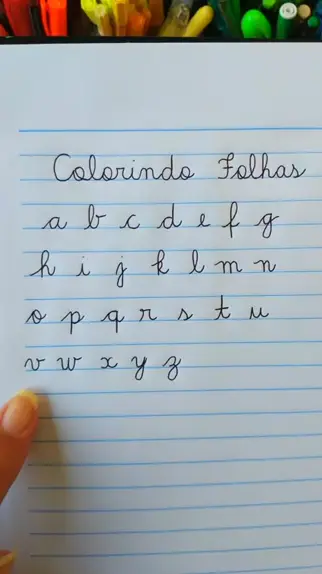 Colorindo Folhas
a b c d e f g
h i j k l m n
o p q r s t u
v w x y z